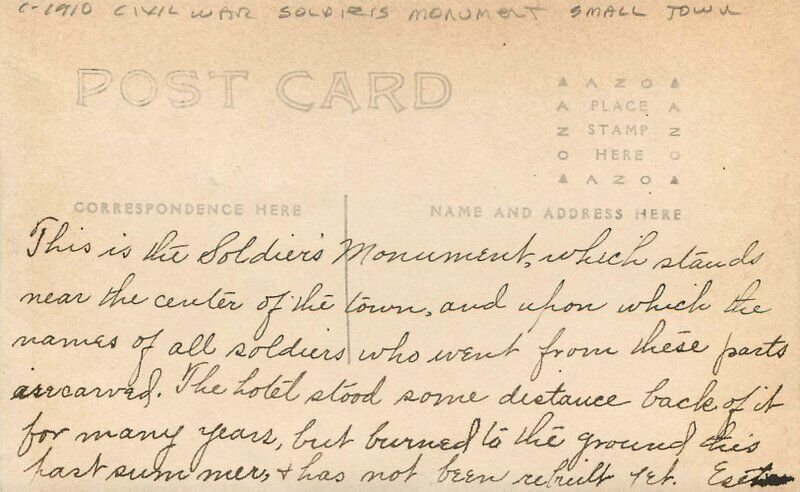 C-1910 CIVIL WAR SOLDIERS MONUMENT SMALL TOWN
POST CARD
▲ A Z O ▲
A PLACE A
Z STAMP Z
O HERE O
▲ A Z O ▲
CORRESPONDENCE HERE
NAME AND ADDRESS HERE
This is the Soldier's Monument, which stands
near the center of the town, and upon which the
names of all soldiers who went from these parts
are carved. The hotel stood some distance back of it
for many years, but burned to the ground this
past summer, & has not been rebuilt yet.